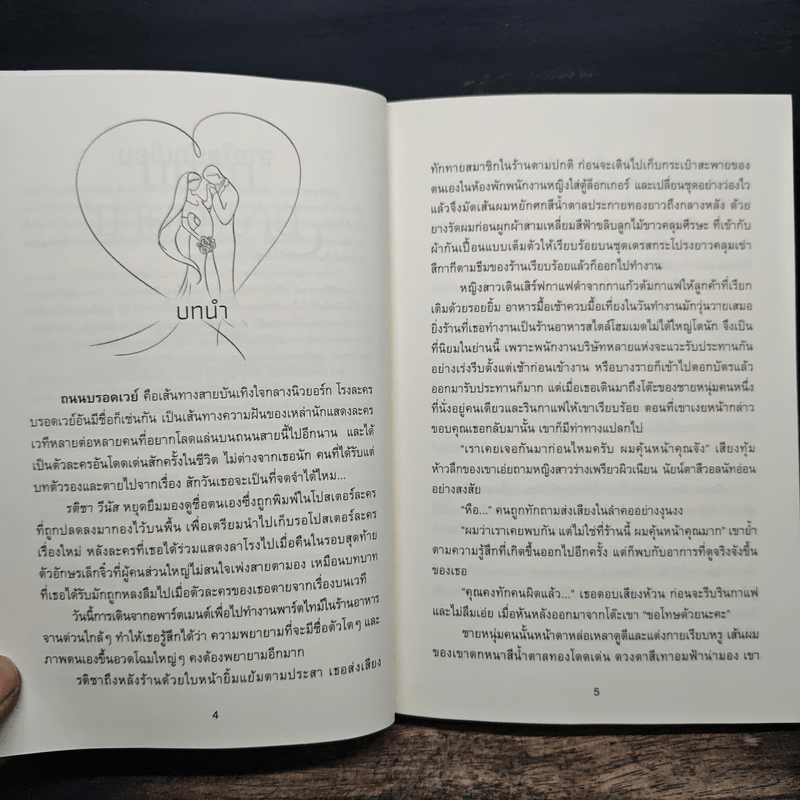 บทนำ
ถนนบรอดเวย์ คือเส้นทางสายบันเทิงใจกลางนิวยอร์ก โรงละคร
บรอดเวย์อันมีชื่อก็เช่นกัน เป็นเส้นทางความฝันของเหล่านักแสดงละคร
เวทีหลายต่อหลายคนที่อยากโลดแล่นบนถนนสายนี้ไปอีกนาน และได้
เป็นตัวละครอันโดดเด่นสักครั้งในชีวิต ไม่ต่างจากเธอนัก คนที่ได้รับแต่
บทตัวรองและตายไปจากเรื่อง สักวันเธอจะเป็นที่จดจำได้ไหม...
รติชา วีนัส หยุดยืนมองดูชื่อตนเองซึ่งถูกพิมพ์ในโปสเตอร์ละคร
ที่ถูกปลดลงมากองไว้บนพื้น เพื่อเตรียมนำไปเก็บรอโปสเตอร์ละคร
เรื่องใหม่ หลังละครที่เธอได้ร่วมแสดงลาโรงไปเมื่อคืนในรอบสุดท้าย
ตัวอักษรเล็กจิ๋วที่ผู้คนส่วนใหญ่ไม่สนใจเพ่งสายตามอง เหมือนบทบาท
ที่เธอได้รับมักถูกหลงลืมไปเมื่อตัวละครของเธอตายจากเรื่องบนเวที
วันนี้การเดินจากอพาร์ตเมนต์เพื่อไปทำงานพาร์ตไทม์ในร้านอาหาร
จานด่วนใกล้ๆ ทำให้เธอรู้สึกได้ว่า ความพยายามที่จะมีชื่อตัวโตๆ และ
ภาพตนเองขึ้นอวดโฉมใหญ่ๆ คงต้องพยายามอีกมาก
รติชาถึงหลังร้านด้วยใบหน้ายิ้มแย้มตามประสา เธอส่งเสียง
4
ทักทายสมาชิกในร้านตามปกติ ก่อนจะเดินไปเก็บกระเป๋าสะพายของ
ตนเองในห้องพักพนักงานหญิงใส่ตู้ล็อกเกอร์ และเปลี่ยนชุดอย่างว่องไว
แล้วจึงมัดเส้นผมหยักศกสีน้ำตาลประกายทองยาวถึงกลางหลัง ด้วย
ยางรัดผมก่อนผูกผ้าสามเหลี่ยมสีฟ้าขลิบลูกไม้ขาวคลุมศีรษะ ที่เข้ากับ
ผ้ากันเปื้อนแบบเต็มตัวให้เรียบร้อยบนชุดเดรสกระโปรงยาวคลุมเข่า
สีกาก็ตามธีมของร้านเรียบร้อยแล้วก็ออกไปทำงาน
หญิงสาวเดินเสิร์ฟกาแฟดำจากกาแก้วต้มกาแฟให้ลูกค้าที่เรียก
เติมด้วยรอยยิ้ม อาหารมื้อเช้าควบมื้อเที่ยงในวันทำงานมักวุ่นวายเสมอ
ยิ่งร้านที่เธอทำงานเป็นร้านอาหารสไตล์โฮมเมดไม่ได้ใหญ่โตนัก จึงเป็น
ที่นิยมในย่านนี้ เพราะพนักงานบริษัทหลายแห่งจะแวะรับประทานกัน
อย่างเร่งรีบตั้งแต่เช้าก่อนเข้างาน หรือบางรายก็เข้าไปตอกบัตรแล้ว
ออกมารับประทานก็มาก แต่เมื่อเธอเดินมาถึงโต๊ะของชายหนุ่มคนหนึ่ง
ที่นั่งอยู่คนเดียวและรินกาแฟให้เขาเรียบร้อย ตอนที่เขาเงยหน้ากล่าว
ขอบคุณเธอกลับมานั้น เขาก็มีท่าทางแปลกไป
"เราเคยเจอกันมาก่อนไหมครับ ผมคุ้นหน้าคุณจัง" เสียงทุ้ม
ห้าวลึกของเขาเอ่ยถามหญิงสาวร่างเพรียวผิวเนียน นัยน์ตาสีวอลนัทอ่อน
อย่างสงสัย
"หือ..." คนถูกทักถามส่งเสียงในลำคออย่างงุนงง
"ผมว่าเราเคยพบกัน แต่ไม่ใช่ที่ร้านนี้ ผมคุ้นหน้าคุณมาก" เขาย้ำ
ตามความรู้สึกที่เกิดขึ้นออกไปอีกครั้ง แต่ก็พบกับอาการที่ดูจริงจังขึ้น
ของเธอ
"คุณคงทักคนผิดแล้ว..." เธอตอบเสียงห้วน ก่อนจะรีบรินกาแฟ
และไม่ลืมเอ่ย เมื่อหันหลังออกมาจากโต๊ะเขา "ขอโทษด้วยนะคะ"
ชายหนุ่มคนนั้นหน้าตาหล่อเหลาดูดีและแต่งกายเรียบหรู เส้นผม
ของเขาดกหนาสีน้ำตาลทองโดดเด่น ดวงตาสีเทาอมฟ้าน่ามอง เขา
5